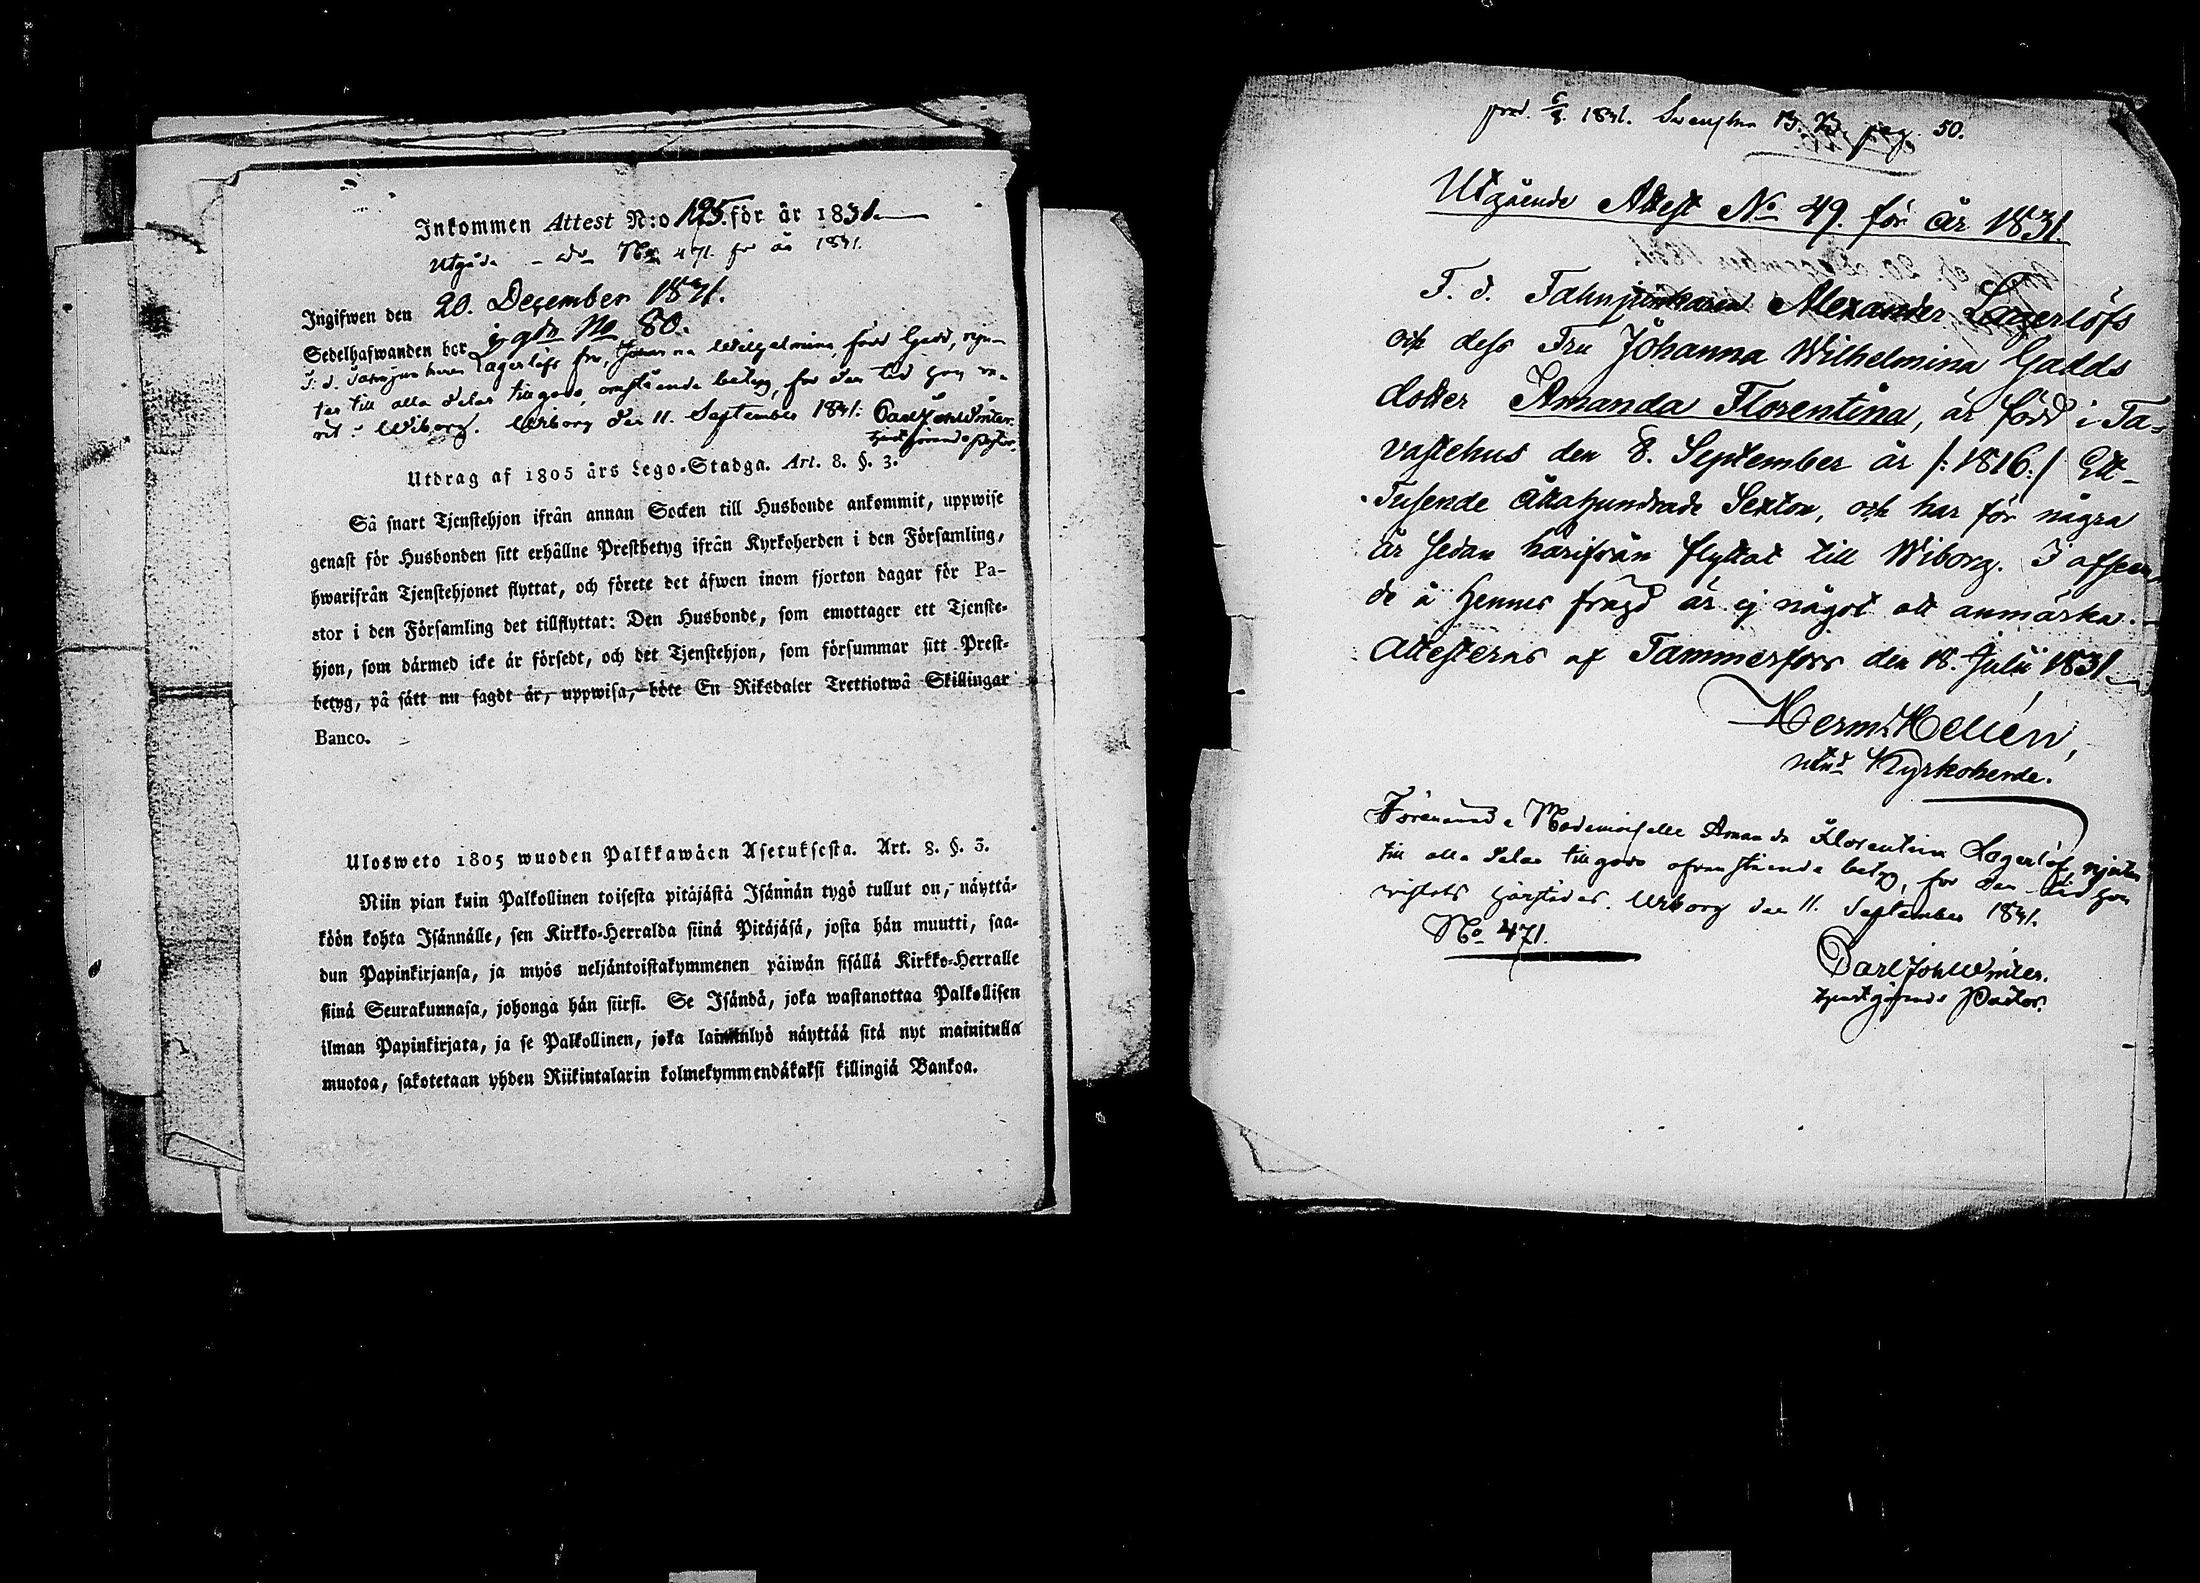 Inkommen Attest N:o 195. för år 1831.
Utgåde - do No 471. för år 1831.
Ingifwen den 20. December 1831.
Sedelhafwanden bor i gdn No 80.
F. d. Fahnjunkaren Lagerlöfs fru, Johanna Wilhelmina, född Gadd, nju-
ter till alla delar tillgodo, omstående betyg, för den tid hon va-
rit i Wiborg. Wiborg den 11. September 1831. Carl Joh Winter
tjenstgörande Pastor.
Utdrag af 1805 års Lego-Stadga. Art. 8. §. 3.
Så snart Tjenstehjon ifrån annan Socken till Husbonde ankommit, uppwise
genast för Husbonden sitt erhållne Prestbetyg ifrån Kyrkoherden i den Församling,
hwarifrån Tjenstehjonet flyttat, och förete det äfwen inom fjorton dagar för Pa-
stor i den Församling det tillflyttat: Den Husbonde, som emottager ett Tjenste-
hjon, som därmed icke är försedt, och det Tjenstehjon, som försummar sitt Prest-
betyg, på sätt nu sagdt är, uppwisa, böte En Riksdaler Trettiotwå Skillingar
Banco.
Ulosweto 1805 wuoden Palkkawäen Asetuksesta. Art. 8. §. 3.
Niin pian kuin Palkollinen toisesta pitäjästä Isännän tygö tullut on, näyttä-
köön kohta Isännälle, sen Kirkko-Herralda siinä Pitäjäsä, josta hän muutti, saa-
dun Papinkirjansa, ja myös neljäntoistakymmenen päiwän sisällä Kirkko-Herralle
siinä Seurakunnasa, johonga hän siirsi. Se Isändä, joka wastanottaa Palkollisen
ilman Papinkirjata, ja se Palkollinen, joka laiminlyö näyttää sitä nyt mainitulla
muotoa, sakotetaan yhden Riikintalarin kolmekymmendäkaksi killingiä Bankoa.
prod. 1831. pag. 50.
Utgående Attest No 49. för år 1831.
F. d. Fahnjunkaren Alexander Lagerlöfs
och dess Fru Johanna Wilhelmina Gadds
dotter Amanda Florentina, är född i Ta-
vastehus den 8. September år /: 1816:/ Ett-
Tusende Åttahundrade Sexton, och har för några
år sedan härifrån flyttat till Wiborg. I afseen-
de å hennes frägd är ej något att anmärka.
Attesteras af Tammerfors den 18. Julii 1831.
Herm. Hellén,
utnd Kyrkoherde.
Förenämnde Mademoiselle Amanda Florentina Lagerlöf, njuter
till alla delar tillgodo ofvanstående betyg, för den tid hon
vistats härstädes. Wiborg den 11. September 1831.
No 471.
Carl Joh Winter.
tjenstgörande Pastor.